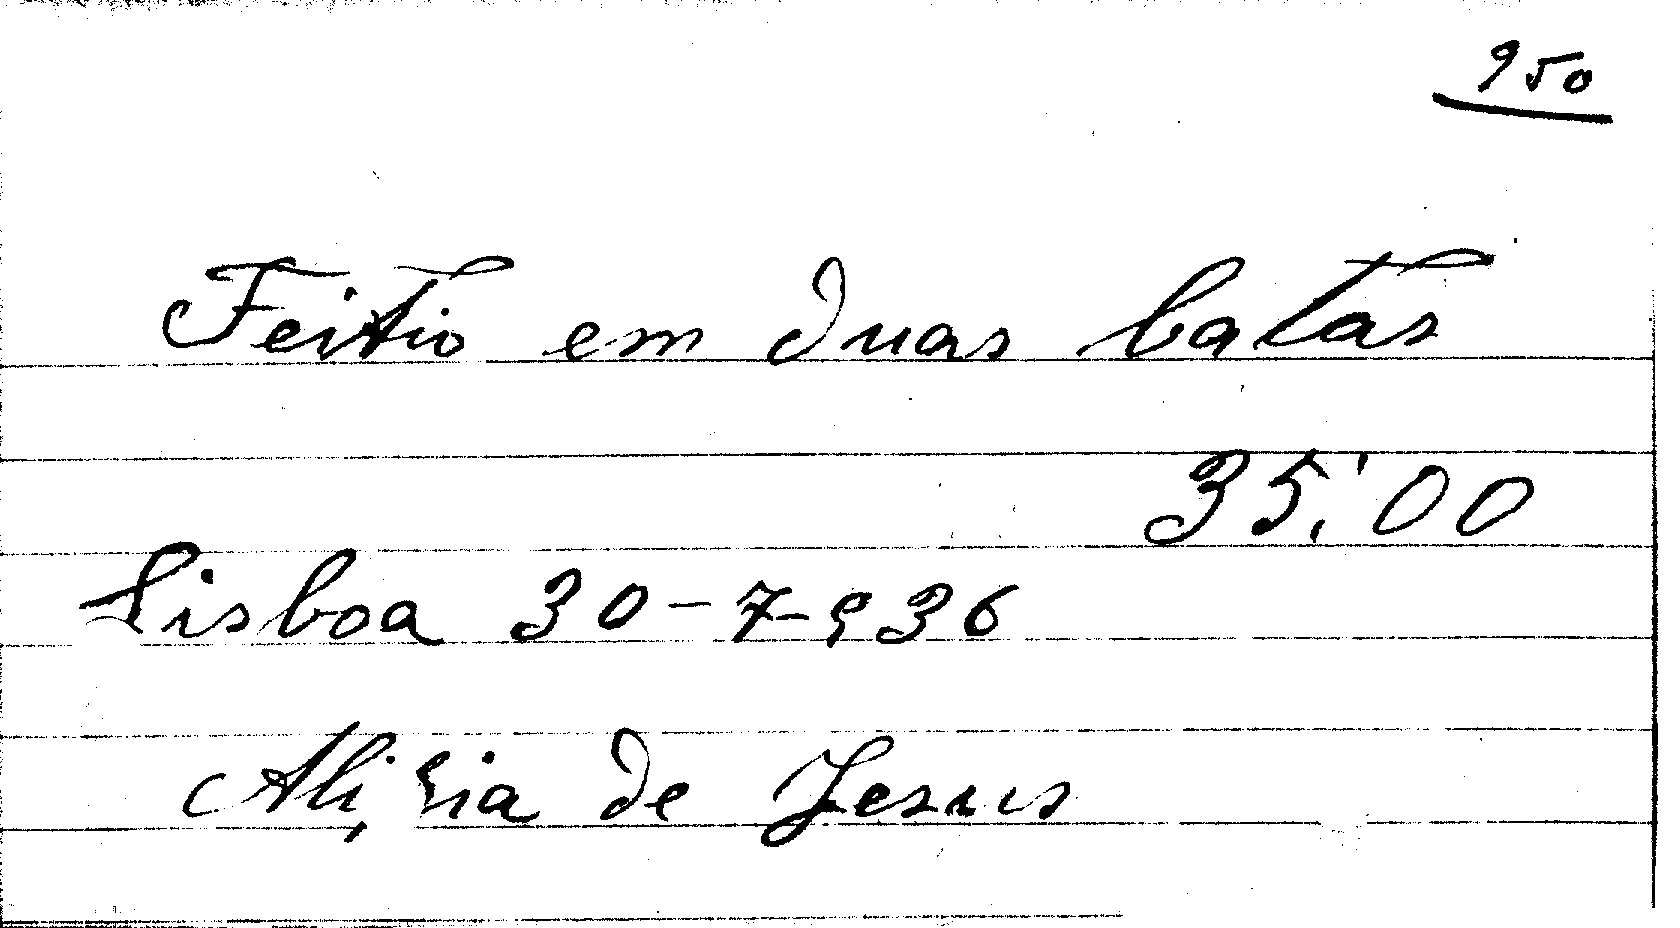 950
Feitio em duas batas
35.'00
Lisboa 30-7-936
de Jesus